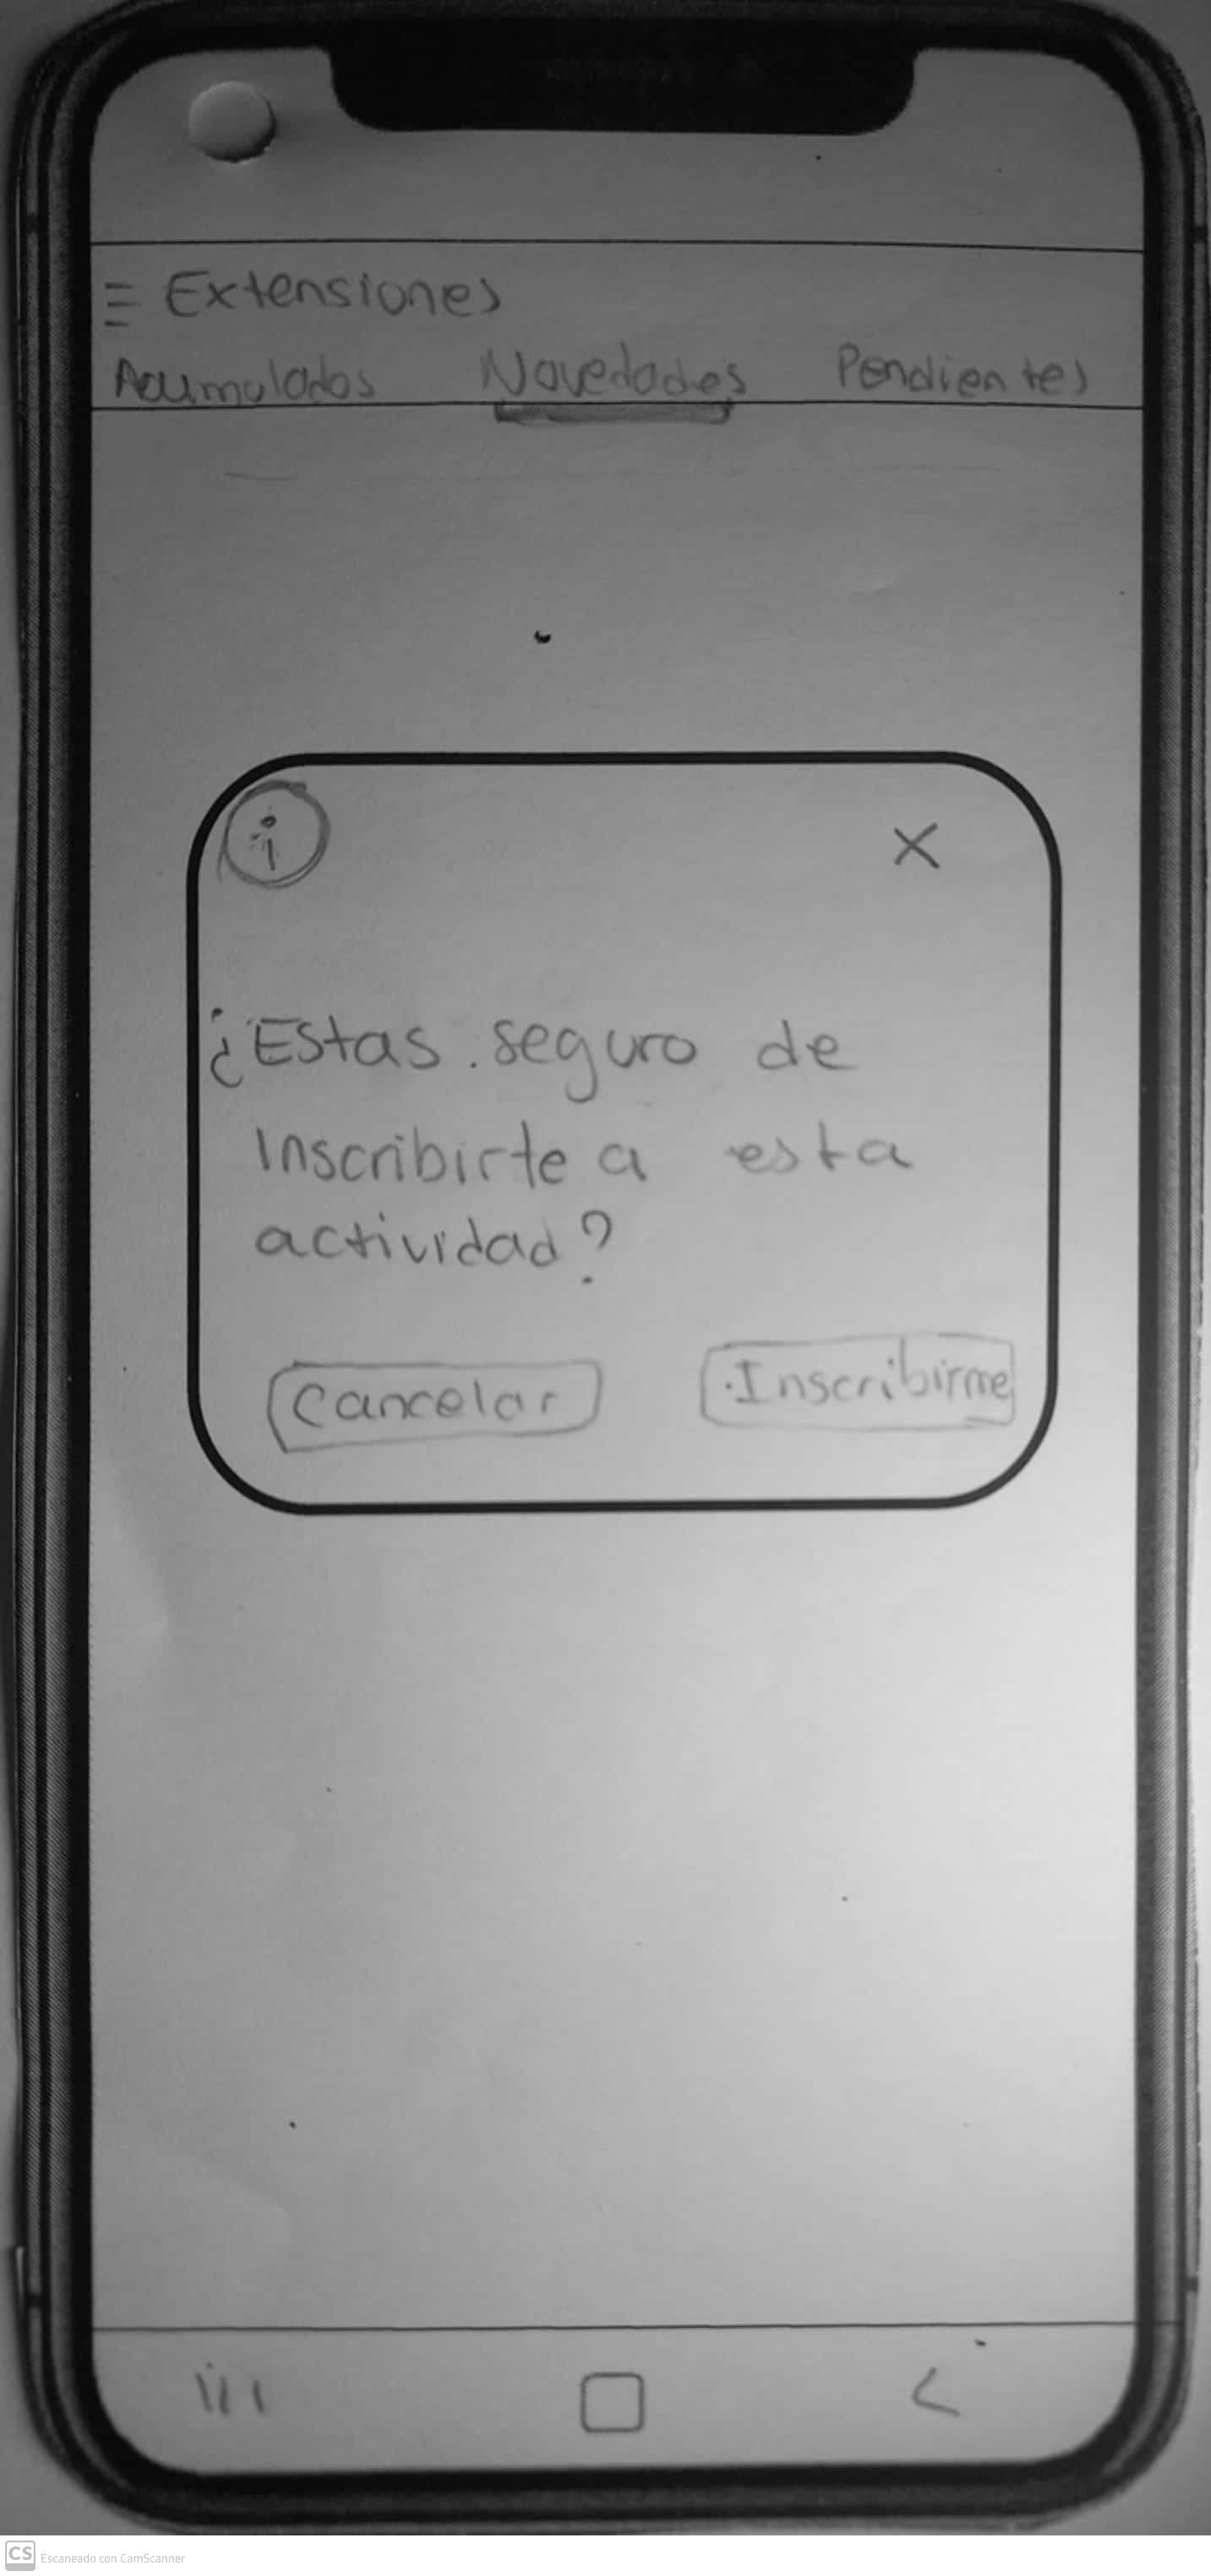 Extensiones
Acumulados Novedades Pendientes
i
¿Estas seguro de
Inscribirte a esta
actividad?
Cancelar Inscribirme
CS Escaneado con CamScanner